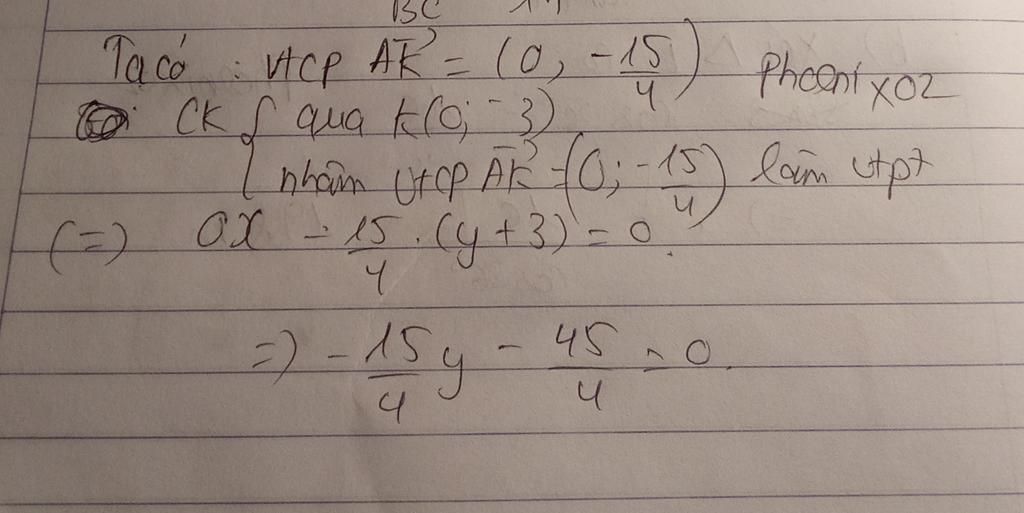 BC
Ta có : vtcp AK⃗ = (0, -15/4) PhoeniX02
CK { qua k(0; -3)
nhâm vtcp AK⃗ = (0; -15/4) làm vtpt
(=) 0x - 15/4 . (y + 3) = 0
=) -15/4 y - 45/4 = 0